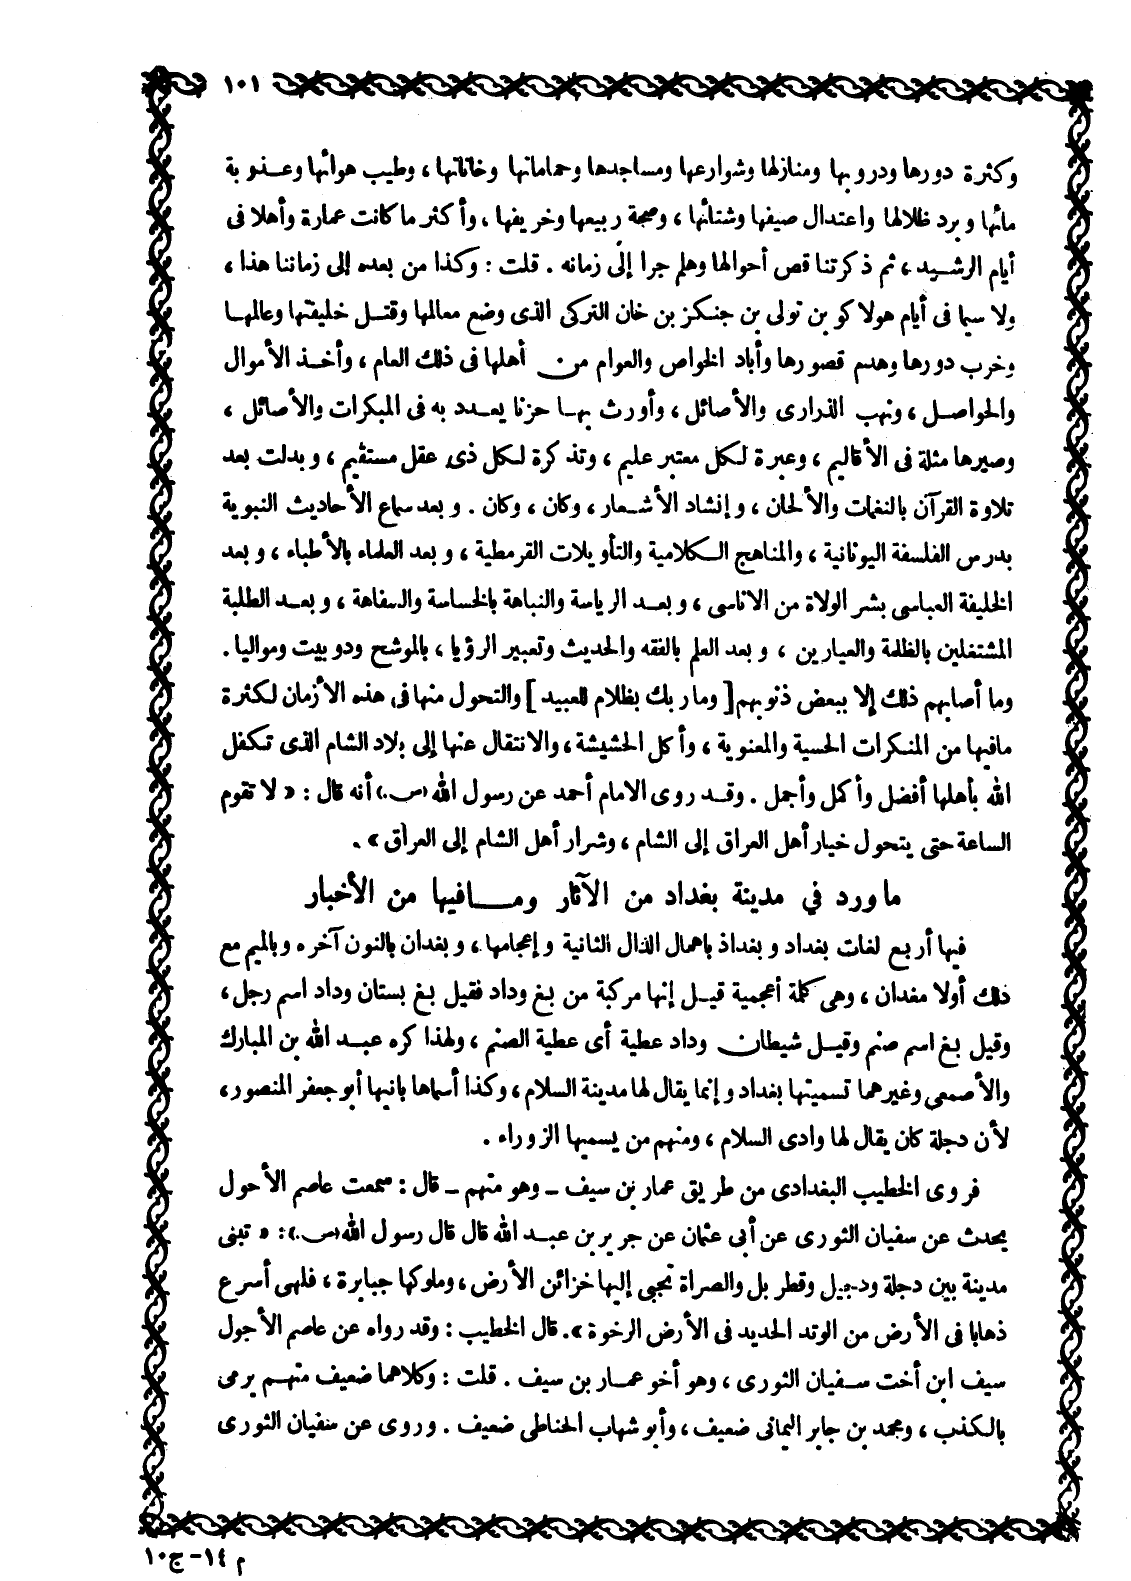 ١٠١
وكثرة دورها ودروبها ومنازلها وشوارعها ومساجدها وحماماتها وخاناتها ، وطيب هوائها وعذوبة
مائها وبرد ظلالها واعتدال صيفها وشتائها ، وصحة ربيعها وخريفها ، وأكثر ما كانت عمارة وأهلا فى
أيام الرشيد ، ثم ذكر تناقص أحوالها وهلم جرا إلى زمانه . قلت : وكذا من بعده إلى زماننا هذا ،
ولا سيما فى أيام هولاكو بن تولى بن جنكز بن خان التركى الذى وضع معالمها وقتل خليفتها وعالمها
وخرب دورها وهدم قصورها وأباد الخواص والعوام من أهلها فى ذلك العام ، وأخذ الأموال
والحواصل ، ونهب الذرارى والأصائل ، وأورث بها حزنا يعدد به فى المبكرات والأصائل ،
وصيرها مثلة فى الأقاليم ، وعبرة لكل معتبر عليم ، وتذكرة لكل ذى عقل مستقيم ، وبدلت بعد
تلاوة القرآن بالنغمات والألحان ، وإنشاد الأشعار ، وكان ، وكان . وبعد سماع الأحاديث النبوية
بدرس الفلسفة اليونانية ، والمناهج الكلامية والتأويلات القرمطية ، وبعد العلماء بالأطباء ، وبعد
الخليفة العباسى بشر الولاة من الاناسى ، وبعد الرياسة والنباهة بالخساسة والسفاهة ، وبعد الطلبة
المشتغلين بالظلمة والعيارين ، وبعد العلم بالفقه والحديث وتعبير الرؤيا ، بالموشح ودوبيت ومواليا .
وما أصابهم ذلك إلا ببعض ذنوبهم [ وما ربك بظلام للعبيد ] والتحول منها فى هذه الأزمان لكثرة
مافيها من المنكرات الحسية والمعنوية ، وأكل الحشيشة ، والانتقال عنها إلى بلاد الشام الذى تكفل
الله بأهلها أفضل وأكمل وأجمل . وقد روى الامام أحمد عن رسول الله (ص.) أنه قال : « لا تقوم
الساعة حتى يتحول خيار أهل العراق إلى الشام ، وشرار أهل الشام إلى العراق » .
ما ورد في مدينة بغداد من الآثار ومـافيها من الأخبار
فيها أربع لغات بغداد وبغداذ باهمال الدال الثانية وإعجامها ، وبغدان بالنون آخره وبالميم مع
ذلك أولا مغدان ، وهى كلمة أعجمية قيل إنها مركبة من بغ وداد فقيل بغ بستان وداد اسم رجل ،
وقيل بغ اسم صنم وقيل شيطان وداد عطية أى عطية الصنم ، ولهذا كره عبد الله بن المبارك
والأصمعى وغيرهما تسميتها بغداد وإنما يقال لها مدينة السلام ، وكذا أسماها بانيها أبو جعفر المنصور ،
لأن دجلة كان يقال لها وادى السلام ، ومنهم من يسميها الزوراء .
فروى الخطيب البغدادى من طريق عمار بن سيف ـ وهو متهم ـ قال : سمعت عاصم الأحول
يحدث عن سفيان الثورى عن أبى عثمان عن جرير بن عبد الله قال قال رسول الله (ص.) : « تبنى
مدينة بين دجلة ودجيل وقطربل والصراة تجبى إليها خزائن الأرض ، وملوكها جبابرة ، فلهى أسرع
ذهابا فى الأرض من الوتد الحديد فى الأرض الرخوة » . قال الخطيب : وقد رواه عن عاصم الأحول
سيف ابن أخت سفيان الثورى ، وهو أخو عمار بن سيف . قلت : وكلاهما ضعيف متهم يرمى
بالكذب ، ومحمد بن جابر اليمانى ضعيف ، وأبو شهاب الحناطى ضعيف . وروى عن سفيان الثورى
م ١٤- ج١٠